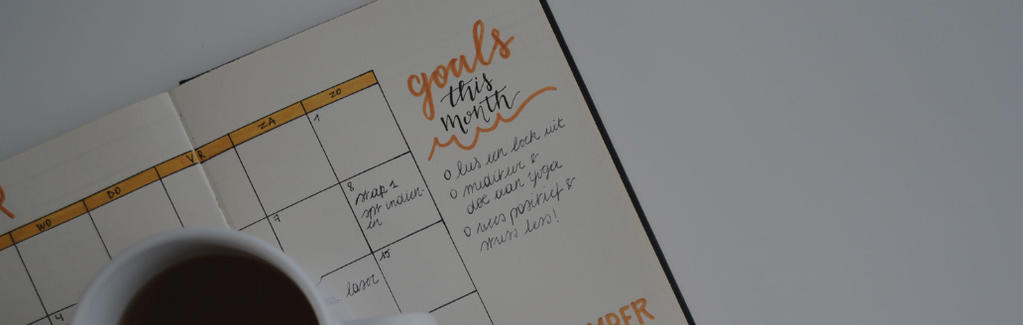 goals
this
month
o lees een boek uit
o mediteer &
doe aan yoga
o wees positief &
stress less!
WO
DO
VR
ZA
ZO
1
7
8
stap 1
in
15
laser
14
MBER
R